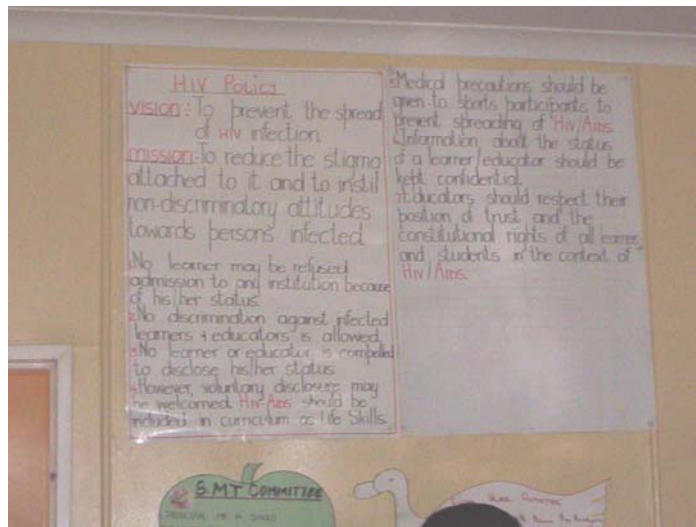 HIV Policy
Vision: To prevent the spread
of HIV infection
mission: To reduce the stigma
attached to it and to instil
non-discriminatory attitudes
towards persons infected
1. No learner may be refused
admission to any institution because
of his/her status.
2. No discrimination against infected
learners + educators is allowed.
3. No learner or educator is compelled
to disclose his/her status
4. However, voluntary disclosure may
be welcomed. HIV-AIDS should be
included in curriculum as Life Skills.
5. Medical precautions should be
given to sports participants to
prevent spreading of HIV/AIDS.
6. Information about the status
of a learner/educator should be
kept confidential.
7. Educators should respect their
position of trust and the
constitutional rights of all learners
and students in the context of
HIV/AIDS.
S.M.T COMMITTEE
PRINCIPAL MR M
COMMITTEE